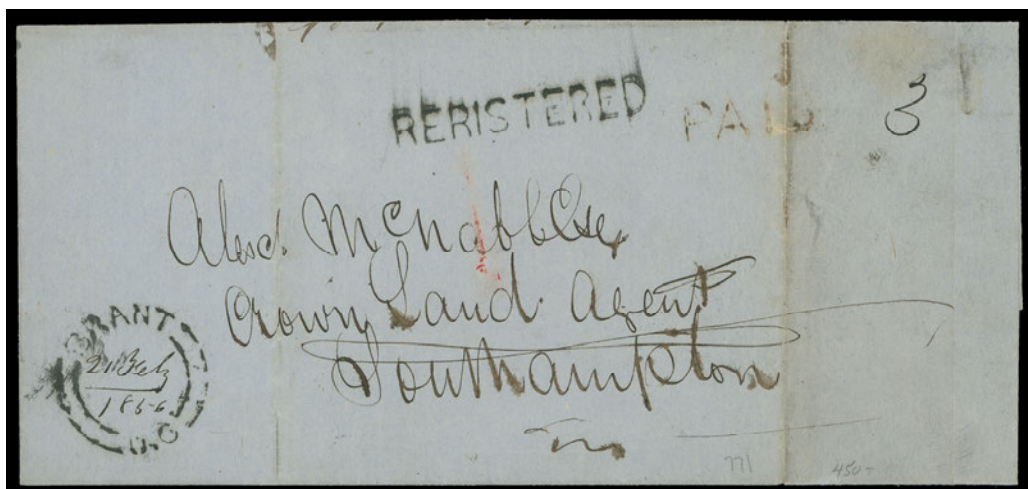 RERISTERED PAID 3
Alexd. McNabb Esq
Crown Land Agent
Southampton
BRANT
21 Feby
1856
U.C
771
450-